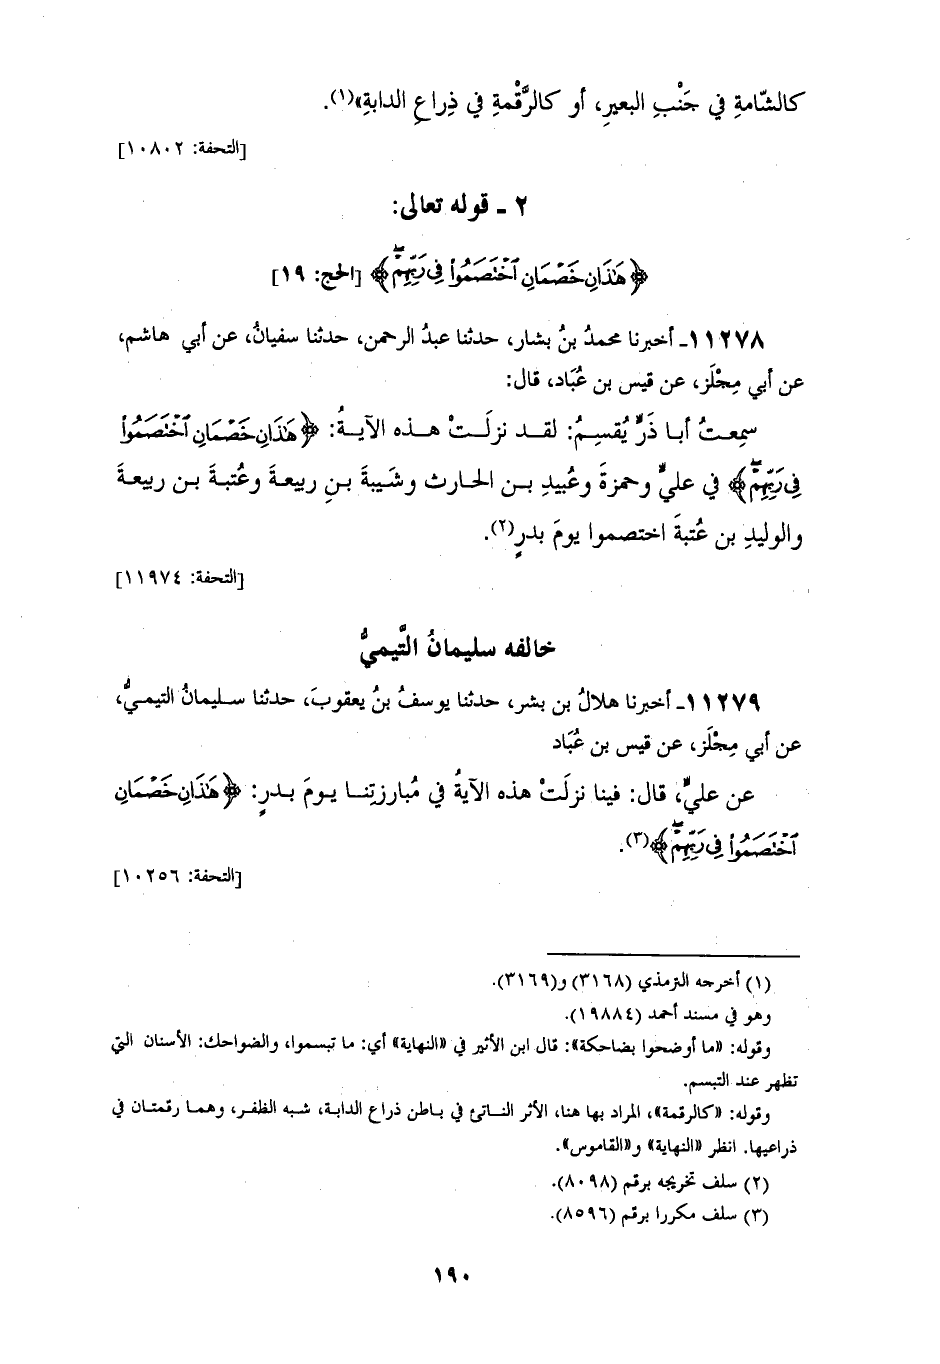 كالشّامةِ في جَنْبِ البعيرِ، أو كالرَّقْمةِ في ذِراعِ الدابةِ»(١).
[التحفة: ١٠٨٠٢]
٢ ـ قوله تعالى:
﴿هَٰذَانِ خَصْمَانِ ٱخْتَصَمُوا۟ فِى رَبِّهِمْ ۖ﴾ [الحج: ١٩]
١١٢٧٨ـ أخبرنا محمدُ بنُ بشار، حدثنا عبدُ الرحمن، حدثنا سفيانُ، عن أبي هاشم،
عن أبي مِجْلَز، عن قيس بن عُبَاد، قال:
سمِعتُ أبا ذَرٍّ يُقسِمُ: لقد نزلَتْ هذه الآيةُ: ﴿هَٰذَانِ خَصْمَانِ ٱخْتَصَمُوا۟
فِى رَبِّهِمْ ۖ﴾ في عليٍّ وحمزةَ وعُبيدِ بن الحارث وشَيبةَ بنِ ربيعةَ وعُتبةَ بن ربيعةَ
والوليدِ بن عُتبةَ اختصموا يومَ بدرٍ(٢).
[التحفة: ١١٩٧٤]
خالفه سليمانُ التَّيميُّ
١١٢٧٩ـ أخبرنا هلالُ بن بشر، حدثنا يوسفُ بنُ يعقوبَ، حدثنا سليمانُ التيميُّ،
عن أبي مِجْلَز، عن قيس بن عُبَاد
عن عليٍّ، قال: فينا نزلَتْ هذه الآيةُ في مُبارزتِنا يومَ بدرٍ: ﴿هَٰذَانِ خَصْمَانِ
ٱخْتَصَمُوا۟ فِى رَبِّهِمْ ۖ﴾(٣).
[التحفة: ١٠٢٥٦]
(١) أخرجه الترمذي (٣١٦٨) و(٣١٦٩).
وهو في مسند أحمد (١٩٨٨٤).
وقوله: «ما أوضحوا بضاحكة»: قال ابن الأثير في «النهاية» أي: ما تبسموا، والضواحك: الأسنان التي
تظهر عند التبسم.
وقوله: «كالرقمة»، المراد بها هنا، الأثر الناتئ في باطن ذراع الدابة، شبه الظفر، وهما رقمتان في
ذراعيها. انظر «النهاية» و«القاموس».
(٢) سلف تخريجه برقم (٨٠٩٨).
(٣) سلف مكررا برقم (٨٥٩٦).
١٩٠